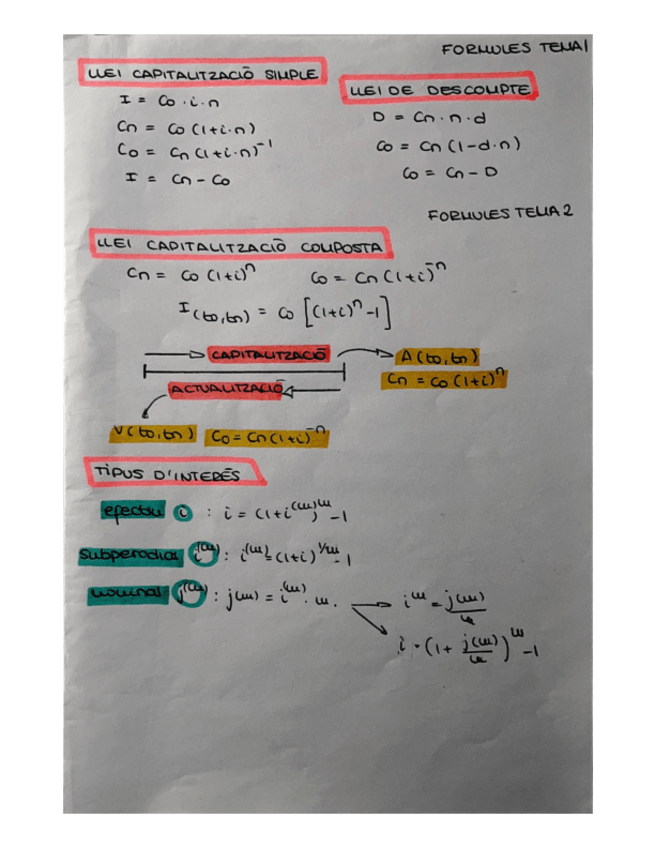 FORMULES TEMA1
LLEI CAPITALITZACIÓ SIMPLE
I = Co · i · n
Cn = Co (1+i·n)
Co = Cn (1+i·n)⁻¹
I = Cn - Co
LLEI DE DESCOMPTE
D = Cn · n · d
Co = Cn (1-d·n)
Co = Cn - D
FORMULES TEMA 2
LLEI CAPITALITZACIÓ COMPOSTA
Cn = Co (1+i)ⁿ Co = Cn (1+i)⁻ⁿ
I(to,tn) = Co [(1+i)ⁿ-1]
CAPITALITZACIÓ A(to,tn)
Cn = Co (1+i)ⁿ
ACTUALITZACIÓ
V(to,tn) Co = Cn (1+i)⁻ⁿ
TIPUS D'INTERÉS
efectiu i : i = (1+i⁽ᵐ⁾)ᵐ-1
subperodial i⁽ᵐ⁾ : i⁽ᵐ⁾ = (1+i)¹/ᵐ-1
nominal j⁽ᵐ⁾ : j(m) = i⁽ᵐ⁾ · m. iᵐ = j(m)/m
i = (1+ j(m)/m)ᵐ-1